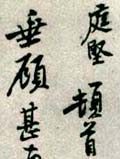 庭堅頓首
垂頋甚